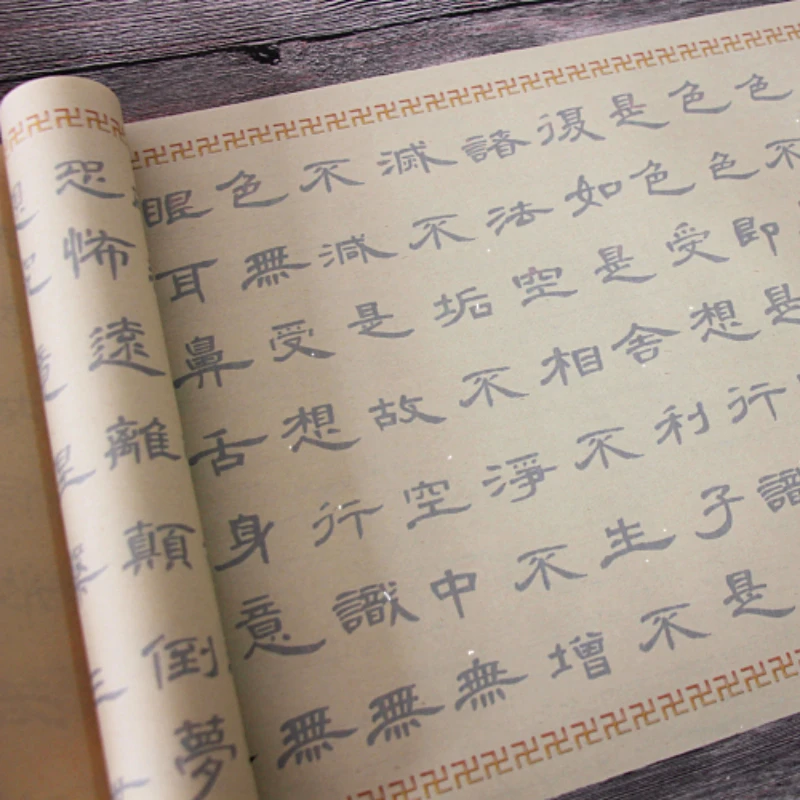 色不
色色即是
是色受想行識
復如是舍利子是
諸法空相不生不
滅不垢不淨不增
不減是故空中無
色無受想行識無
眼耳鼻舌身意無
恐怖遠離顛倒夢